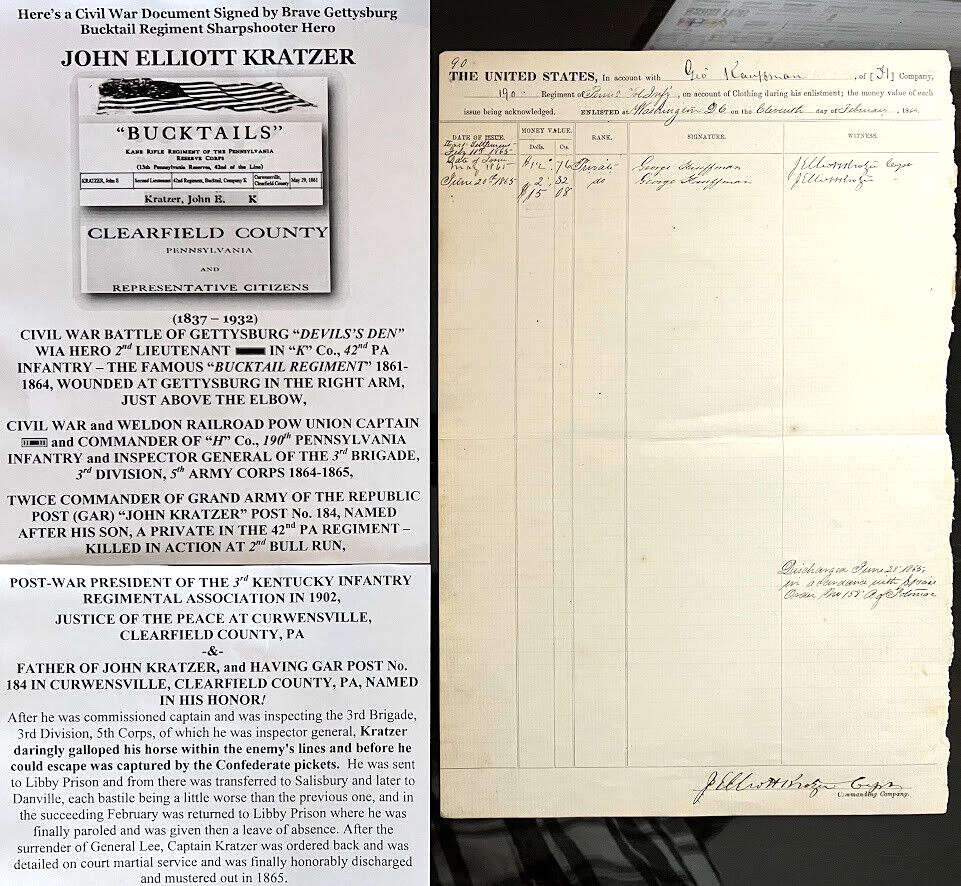 Here's a Civil War Document Signed by Brave Gettysburg
Bucktail Regiment Sharpshooter Hero
JOHN ELLIOTT KRATZER
"BUCKTAILS"
KANE RIFLE REGIMENT OF THE PENNSYLVANIA
RESERVE CORPS
(13th Pennsylvania Reserves, 42nd of the Line)
KRATZER, John E Second Lieutenant 42nd Regiment, Bucktail, Company K Curwensville, Clearfield County May 29, 1861
Kratzer, John E. K
CLEARFIELD COUNTY
PENNSYLVANIA
AND
REPRESENTATIVE CITIZENS
(1837 – 1932)
CIVIL WAR BATTLE OF GETTYSBURG "DEVILS'S DEN"
WIA HERO 2nd LIEUTENANT IN "K" Co., 42nd PA
INFANTRY – THE FAMOUS "BUCKTAIL REGIMENT" 1861-
1864, WOUNDED AT GETTYSBURG IN THE RIGHT ARM,
JUST ABOVE THE ELBOW,
CIVIL WAR and WELDON RAILROAD POW UNION CAPTAIN
and COMMANDER OF "H" Co., 190th PENNSYLVANIA
INFANTRY and INSPECTOR GENERAL OF THE 3rd BRIGADE,
3rd DIVISION, 5th ARMY CORPS 1864-1865,
TWICE COMMANDER OF GRAND ARMY OF THE REPUBLIC
POST (GAR) "JOHN KRATZER" POST No. 184, NAMED
AFTER HIS SON, A PRIVATE IN THE 42nd PA REGIMENT –
KILLED IN ACTION AT 2nd BULL RUN,
POST-WAR PRESIDENT OF THE 3rd KENTUCKY INFANTRY
REGIMENTAL ASSOCIATION IN 1902,
JUSTICE OF THE PEACE AT CURWENSVILLE,
CLEARFIELD COUNTY, PA
-&-
FATHER OF JOHN KRATZER, and HAVING GAR POST No.
184 IN CURWENSVILLE, CLEARFIELD COUNTY, PA, NAMED
IN HIS HONOR!
After he was commissioned captain and was inspecting the 3rd Brigade,
3rd Division, 5th Corps, of which he was inspector general, Kratzer
daringly galloped his horse within the enemy's lines and before he
could escape was captured by the Confederate pickets. He was sent
to Libby Prison and from there was transferred to Salisbury and later to
Danville, each bastile being a little worse than the previous one, and in
the succeeding February was returned to Libby Prison where he was
finally paroled and was given then a leave of absence. After the
surrender of General Lee, Captain Kratzer was ordered back and was
detailed on court martial service and was finally honorably discharged
and mustered out in 1865.
90
THE UNITED STATES, In account with Geo Kauffman, of [H] Company,
190 Regiment of Penns Vol Inf'y, on account of Clothing during his enlistment; the money value of each
issue being acknowledged. ENLISTED at Washington D.C. on the Eleventh day of February, 186
DATE OF ISSUE. MONEY VALUE. RANK. SIGNATURE. WITNESS.
Dolls. Cts.
Feby 11th 1865
May 1865 $12 76 Private George Kauffman J Elliott Kratzer Capt
June 20th 1865 2 32 do George Kauffman J Elliott Kratzer "
$15 08
Discharged June 28 1865,
in accordance with
Order No 158 A of Potomac
J Elliott Kratzer Capt
Commanding Company.